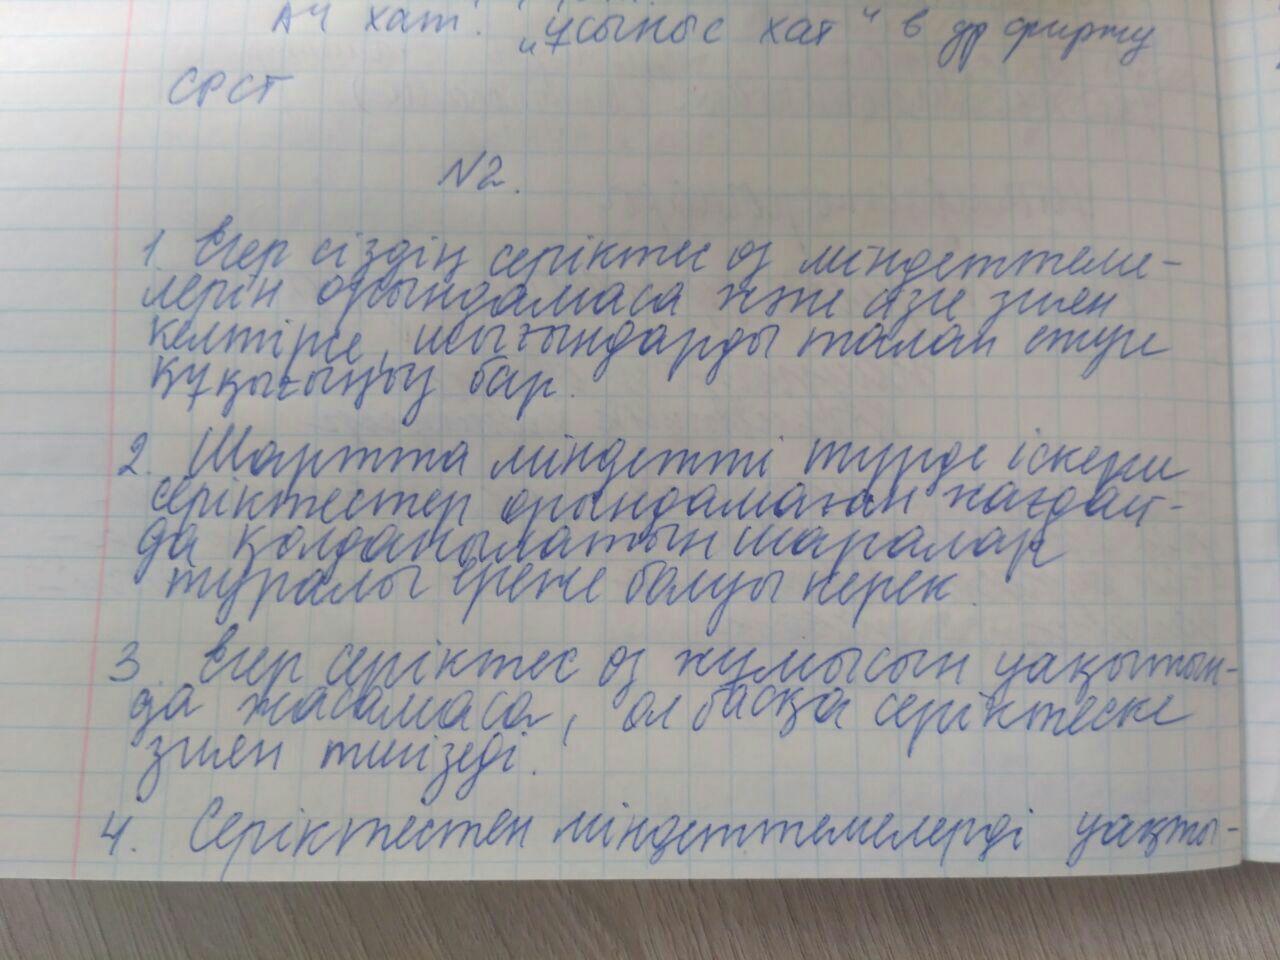 АЧ хат. "Ұсыныс хат" в др фирму
СРСТ
N2.
1. Егер сіздің серіктес өз міндеттеме-
лерін орындамаса және сізге зиян
келтірсе, шығындарды талап етуге
құқығыңыз бар.
2. Шартта міндетті түрде іскери
серіктестер орындамаған жағдай-
да қолданылатын шаралар
туралы ереже болуы керек.
3. Егер серіктес өз жұмысын уақытын-
да жасамаса, ол басқа серіктеске
зиян тигізеді.
4. Серіктестен міндеттемелерді уақты-